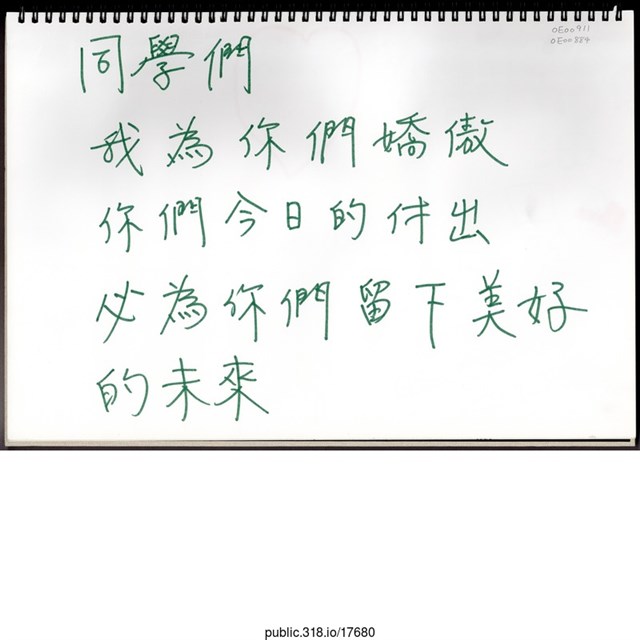 OE00911
OE00884
同學們
我為你們嬌傲
你們今日的付出
必為你們留下美好
的未來
public.318.io/17680